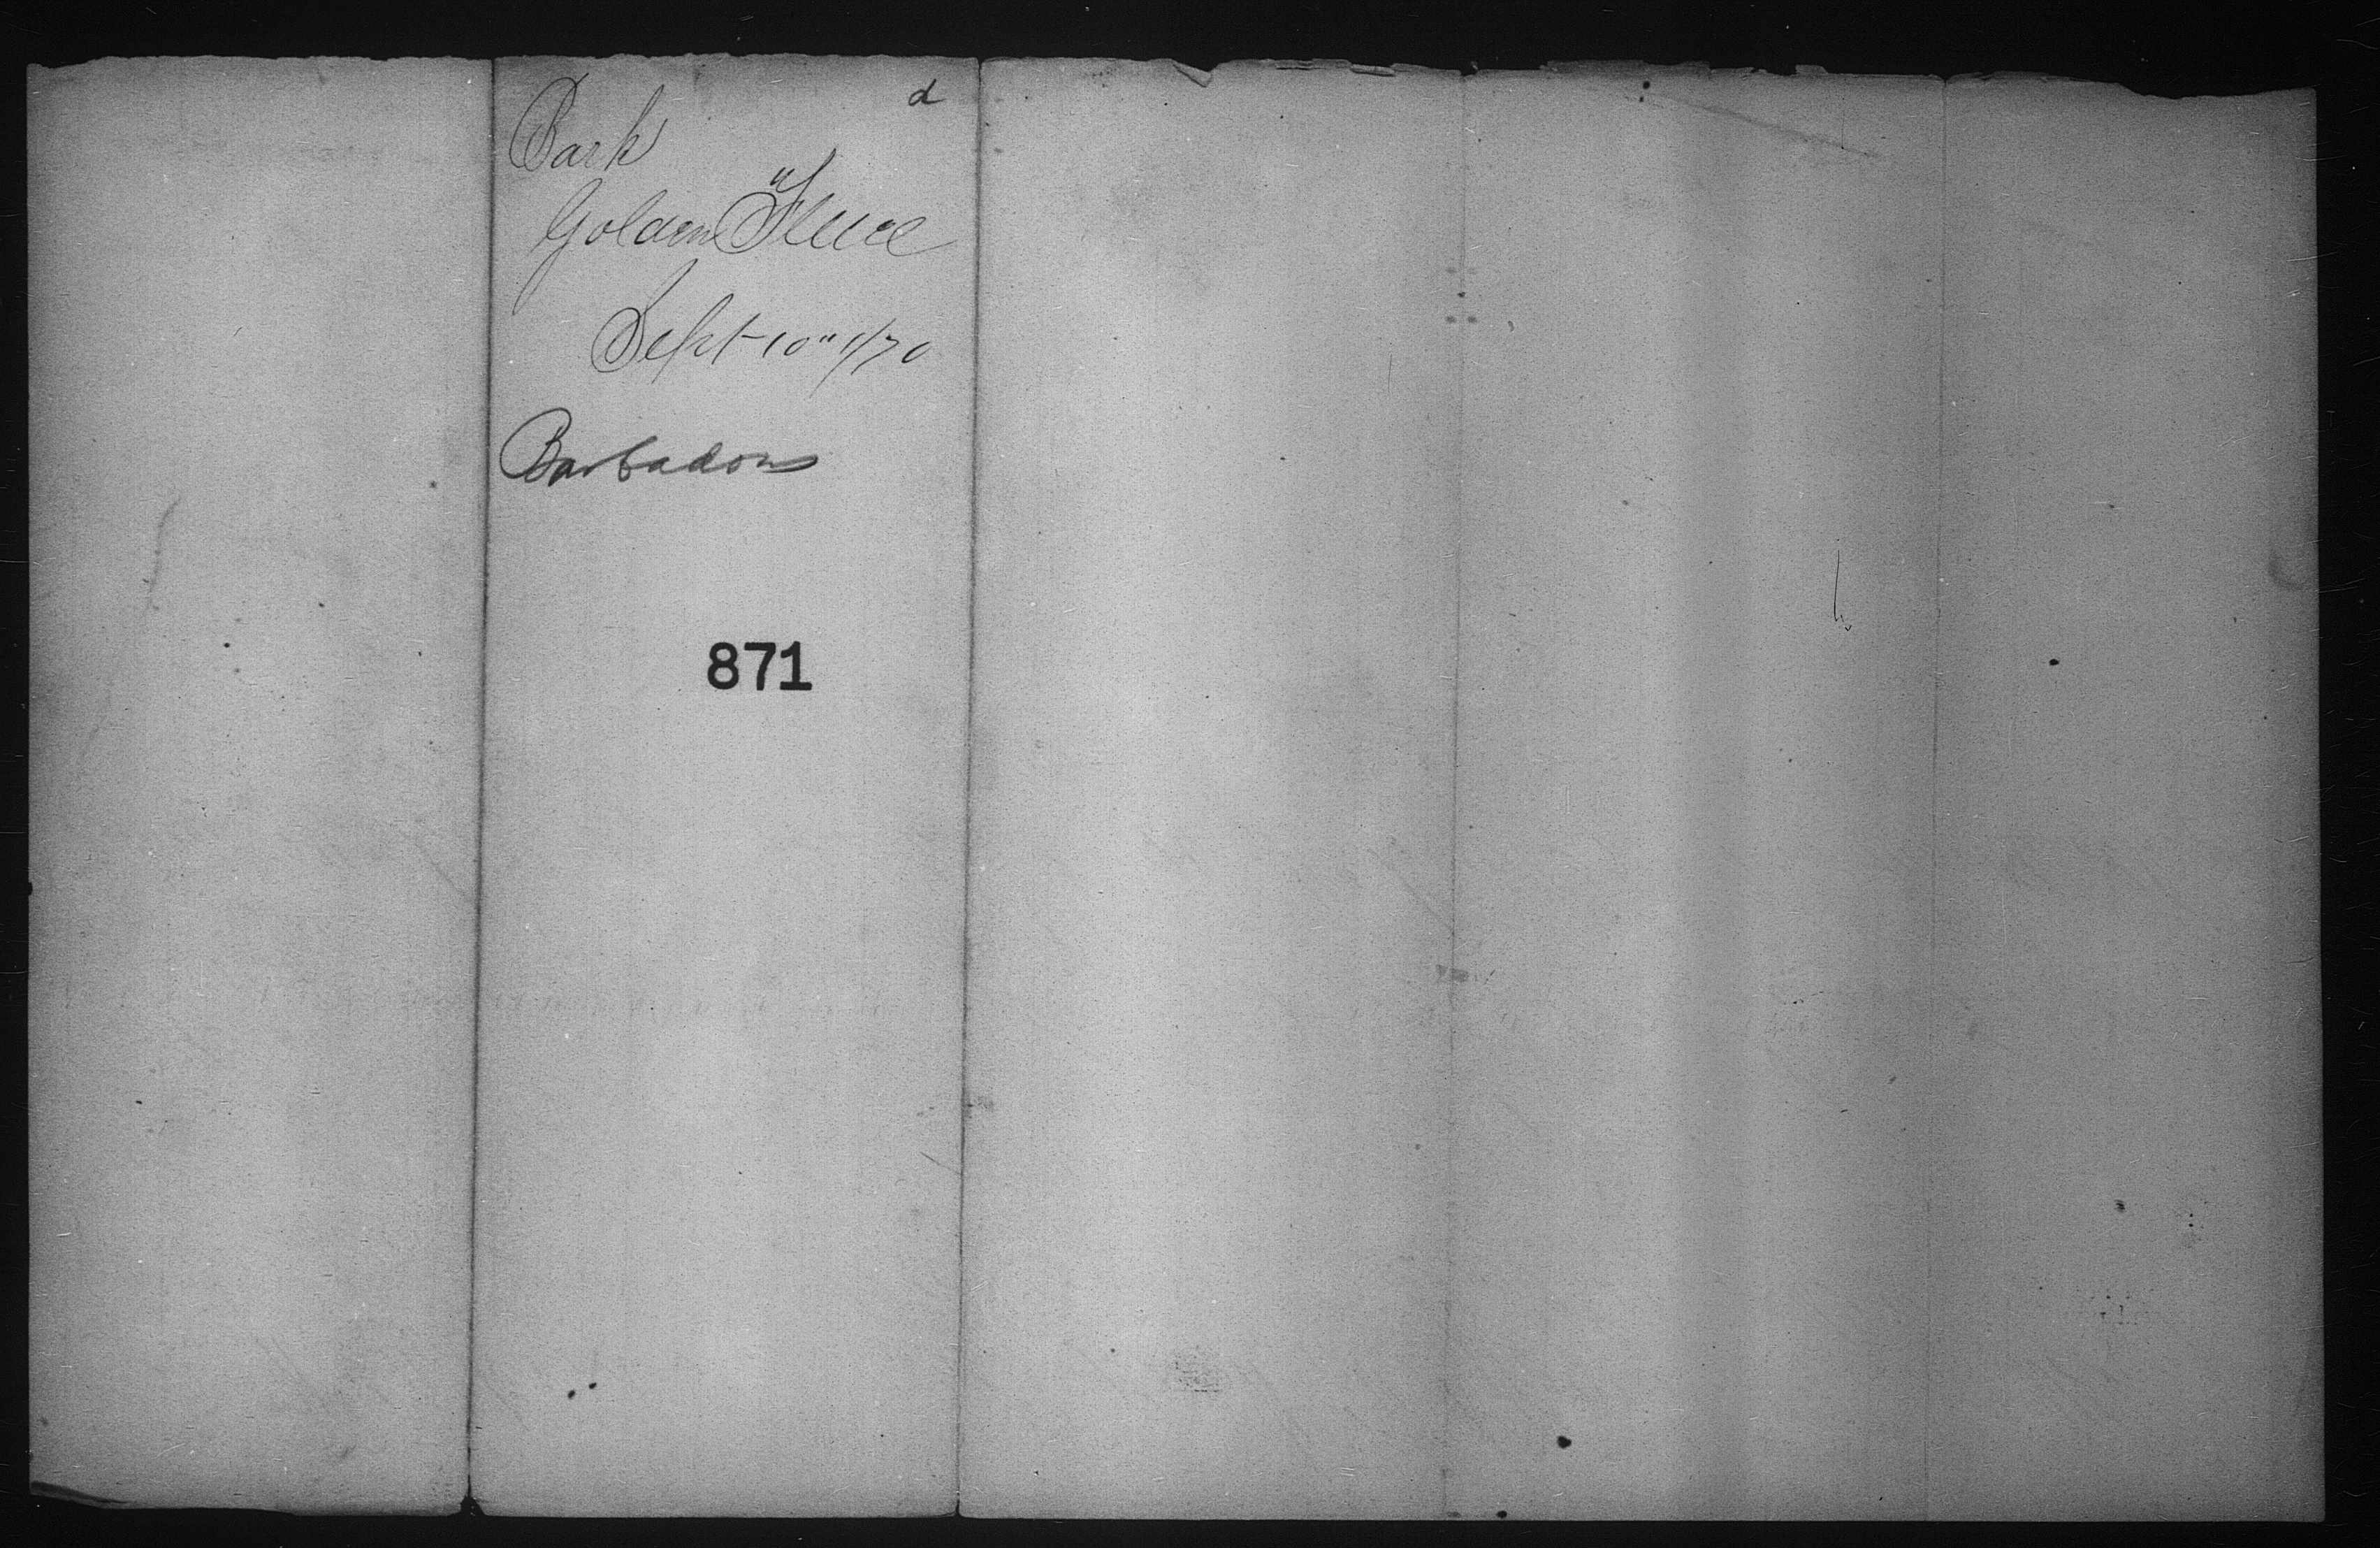 d
Bark
"
Golden Fleece
Sept 10" 1/70
Barbados
871